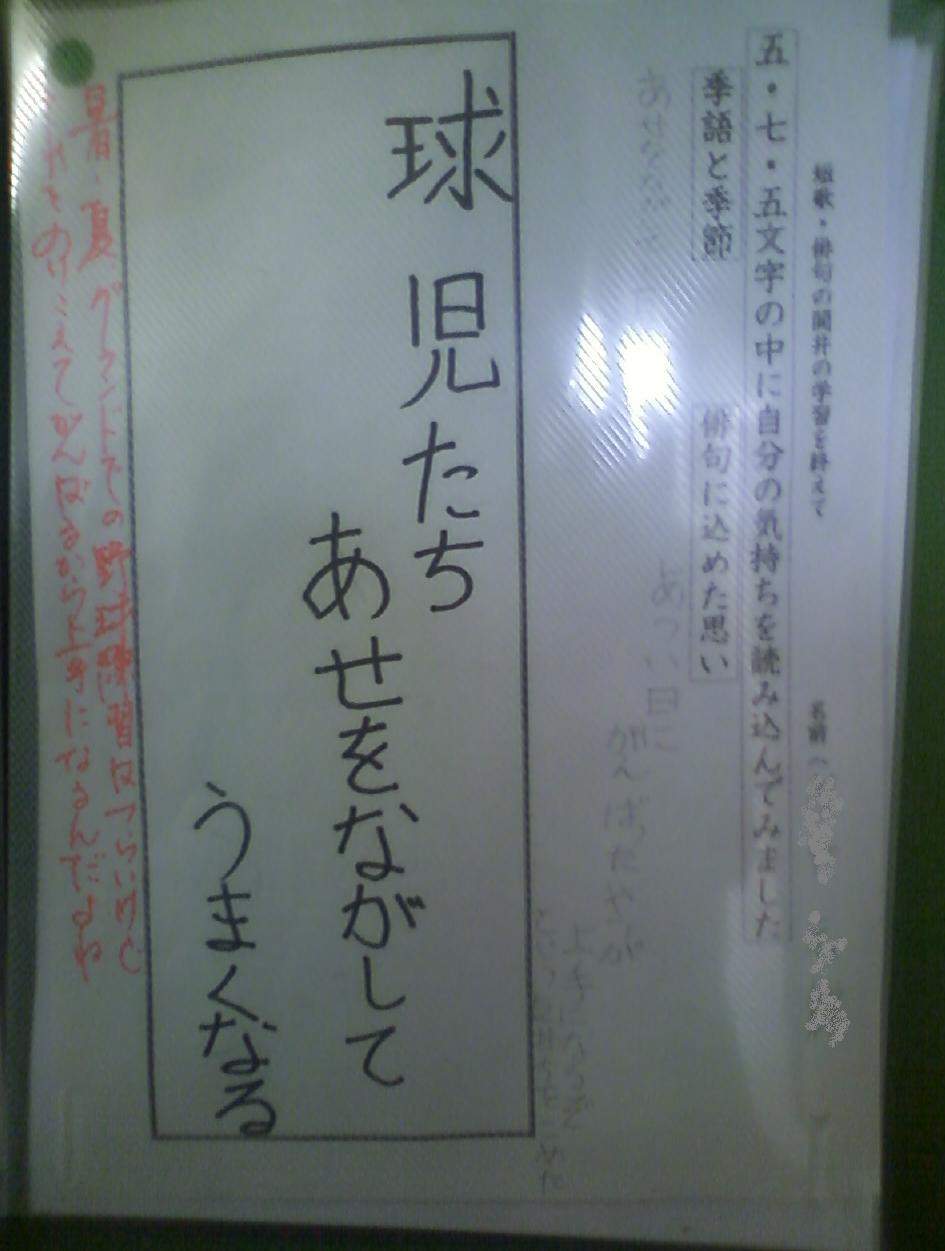 短歌・俳句の関井の学習を終えて 名前(
五・七・五文字の中に自分の気持ちを読み込んでみました
季語と季節
俳句に込めた思い
あせながし
あつい日に
がんばったやつが
上手になるぞ
という気持ちをこめた
球児たち
あせをながして
うまくなる
暑い夏グランドでの野球練習はつらいけど
それをのりこえてがんばるから上手になるんだよね